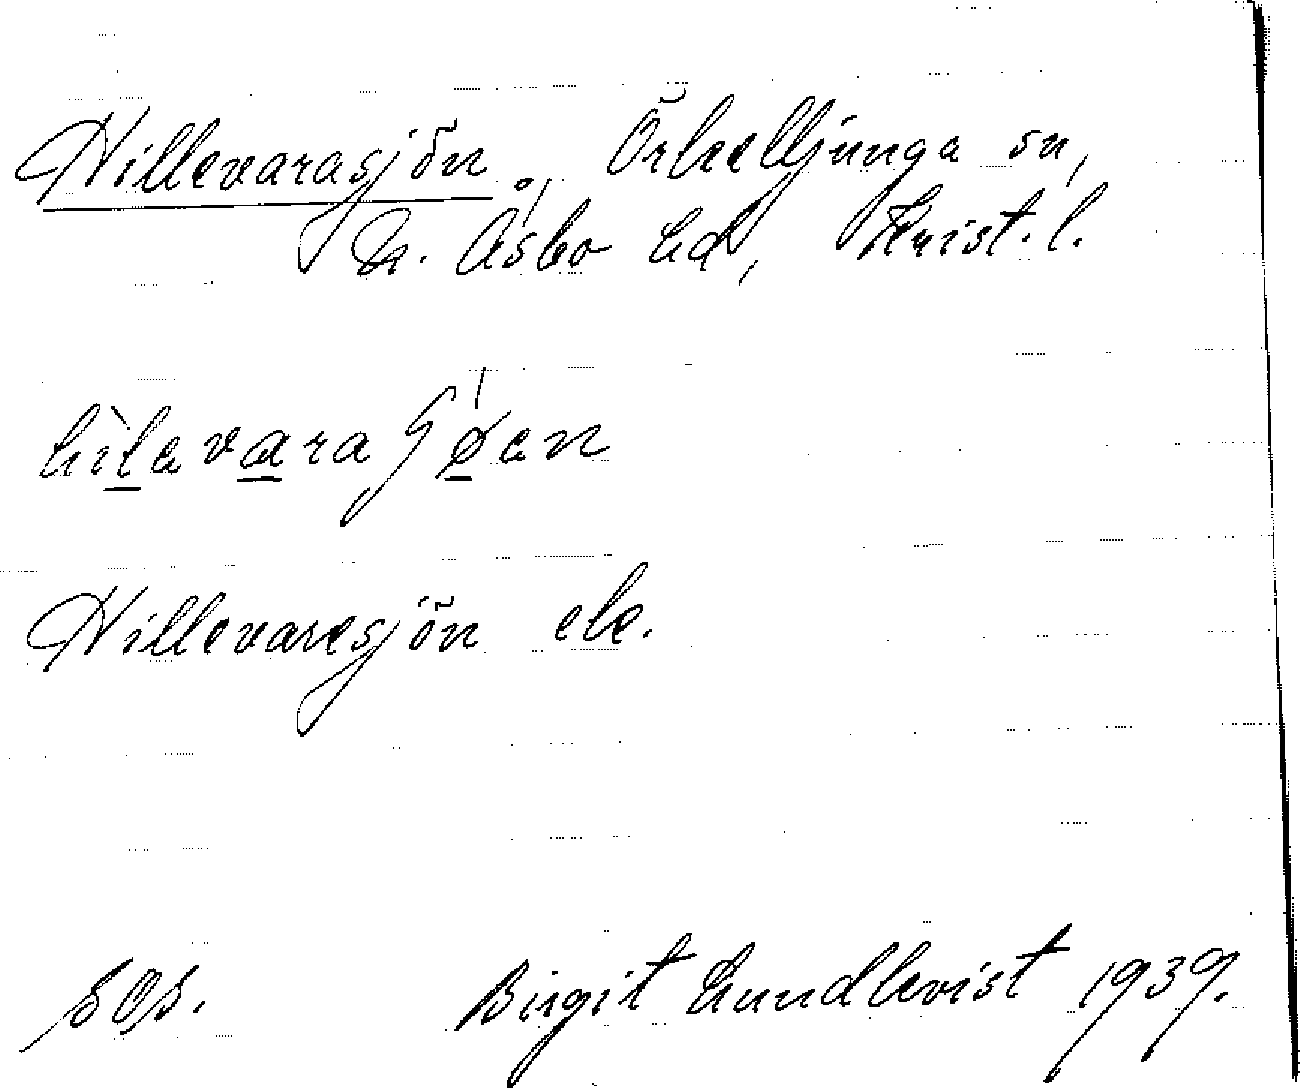 Hillevarasjön, Örkelljunga sn,
N. Åsbo hd, Krist. l.
hìlevaraʃǿen
Hillevaresjön ek.
sos. Birgit Lundkvist 1939.